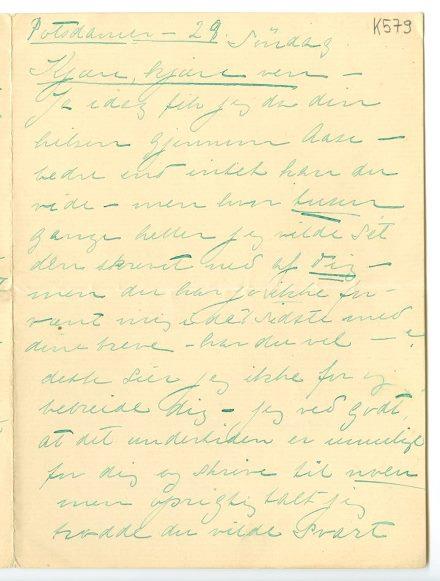 K579
Potsdamer – 29 Söndag
Kjære, kjære ven –
Ja idag fik jeg da din
hilsen gjennem Aase –
bedre end intet kan du
vide – men hvor tusen
gange heller jeg vilde set
den skrevet ned af dig –
men du har jo ikke for-
vænt mig i det sidste med
dine breve – har du vel – ?
dette sier jeg ikke for og
bebreide dig – jeg ved godt,
at det undertiden er umuligt
for dig og skrive til noen
men oprigtig talt jeg
trodde du vilde svart